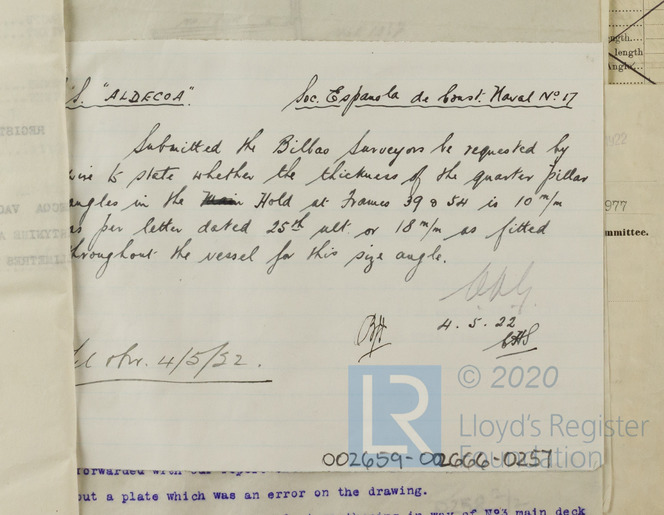 ngth....
length
Angle
REGIST
S. "ALDECOA". Soc. Española de Const. Naval No. 17
Submitted the Bilbao Surveyors be requested by
wire to state whether the thickness of the quarter pillar
angles in the Main Hold at Frames 39 & 54 is 10 m/m
as per letter dated 25th ult. or 18 m/m as fitted
throughout the vessel for this size angle.
977
mmittee.
ECOA VAC
4.5.22
4/5/22.
LR
© 2020
Lloyd's Register
Foundation
002659-002666-0257
forwarded with our
out a plate which was an error on the drawing.
in way of No3 main deck